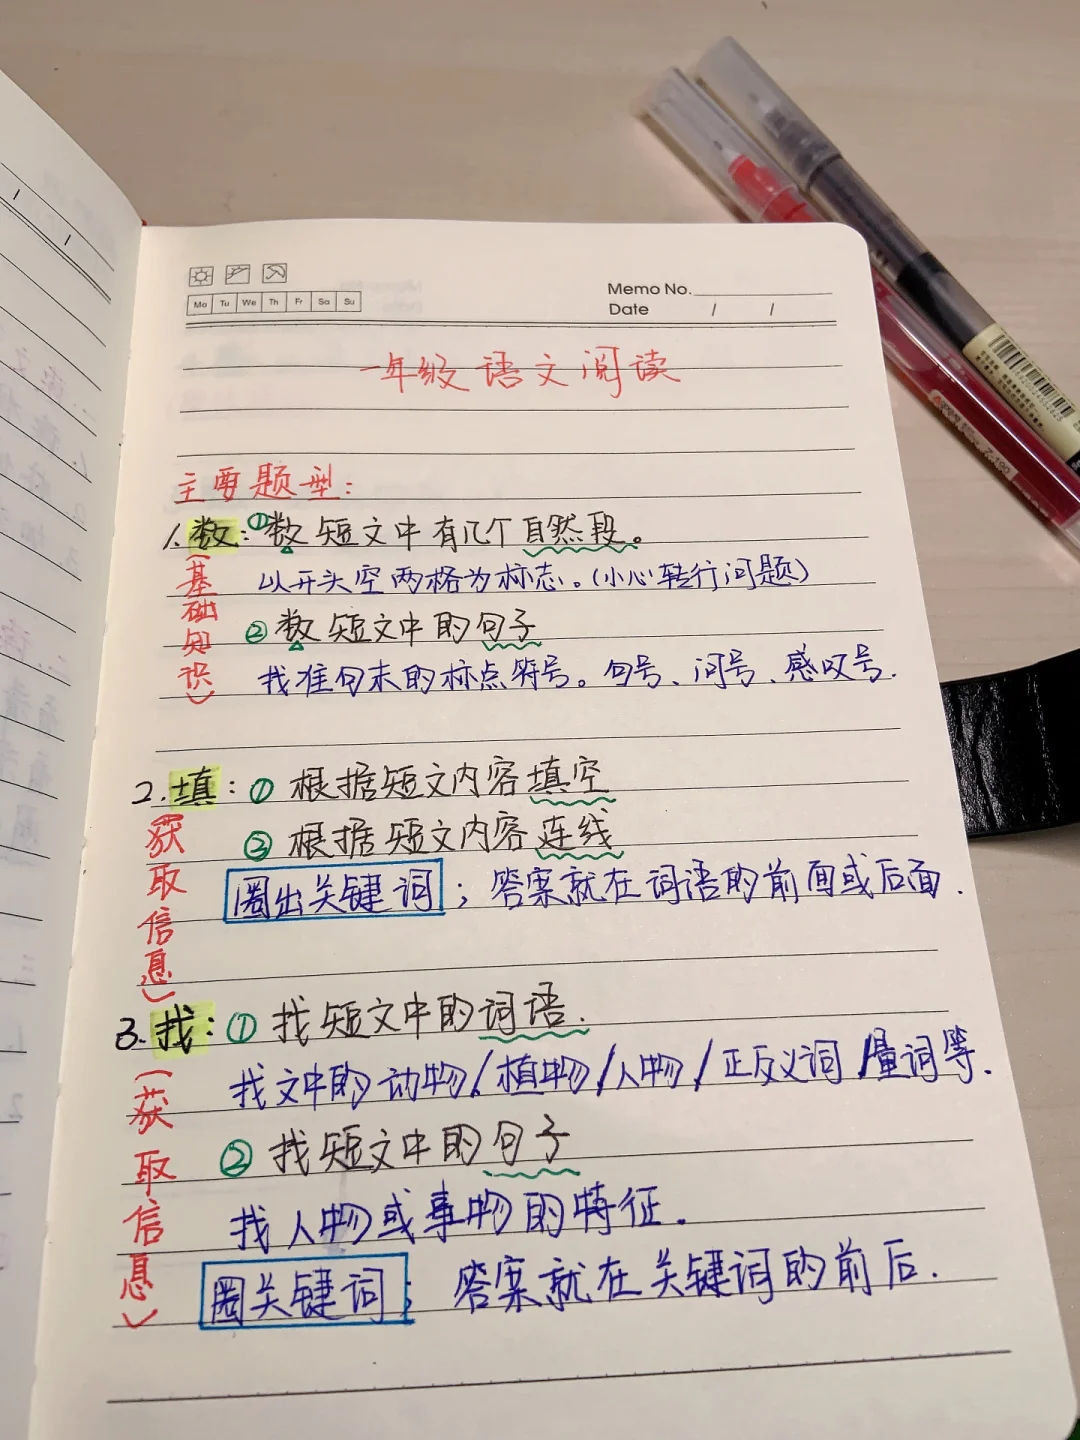 Mo Tu We Th Fr Sa Su
Memo No.
Date / /
一年级语文阅读
主要题型:
1.数:①数短文中有几个自然段。
(基础知识)
以开头空两格为标志。(小心转行问题)
②数短文中的句子
找准句末的标点符号。句号、问号、感叹号.
2.填:①根据短文内容填空
(获取信息)
②根据短文内容连线
圈出关键词;答案就在词语的前面或后面.
3.找:①找短文中的词语.
(获取信息)
找文中的动物/植物/人物/正反义词/量词等.
②找短文中的句子
找人物或事物的特征.
圈关键词;答案就在关键词的前后.